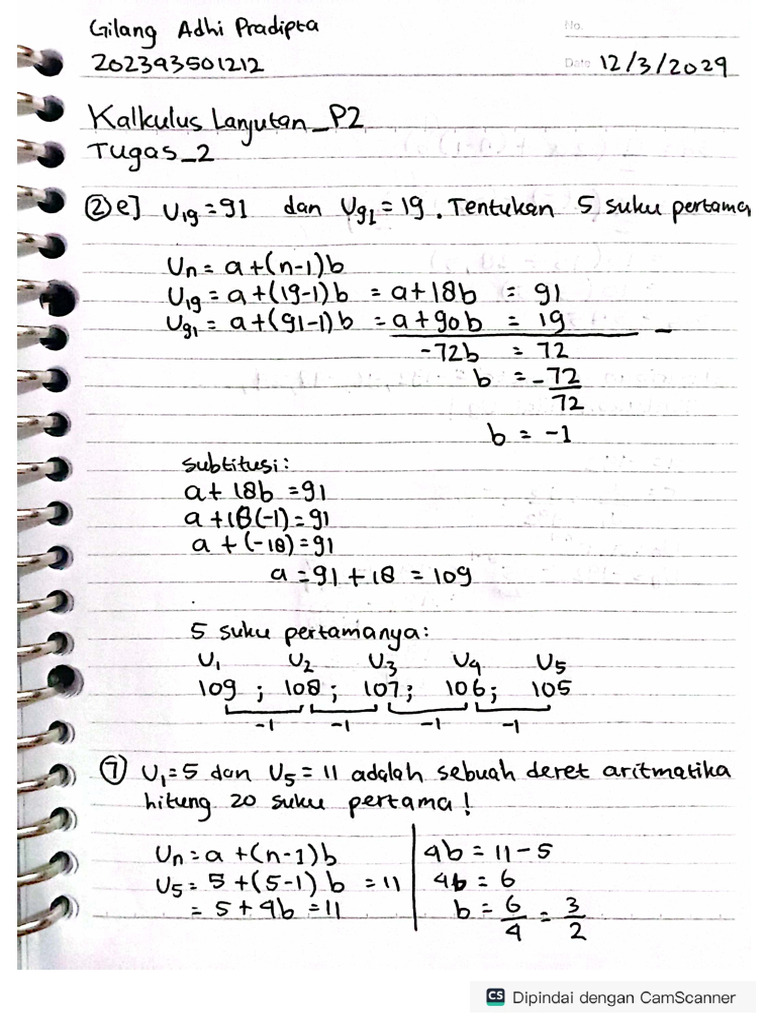 Gilang Adhi Pradipta
No.
202343501212
Date 12/3/2024
Kalkulus Lanjutan_P2
Tugas_2
② e] U₁₉ = 91 dan U₉₁ = 19. Tentukan 5 suku pertama
Uₙ = a+(n-1)b
U₁₉ = a+(19-1)b = a+18b = 91
U₉₁ = a+(91-1)b = a+90b = 19 –
-72b = 72
b = -72/72
b = -1
subtitusi:
a + 18b = 91
a + 18(-1) = 91
a + (-18) = 91
a = 91 + 18 = 109
5 suku pertamanya:
U₁ U₂ U₃ U₄ U₅
109 ; 108 ; 107 ; 106 ; 105
-1 -1 -1 -1
⑦ U₁ = 5 dan U₅ = 11 adalah sebuah deret aritmatika
hitung 20 suku pertama!
Uₙ = a + (n-1)b
U₅ = 5 + (5-1) b = 11
= 5 + 4b = 11
4b = 11 - 5
4b = 6
b = 6/4 = 3/2
CS Dipindai dengan CamScanner